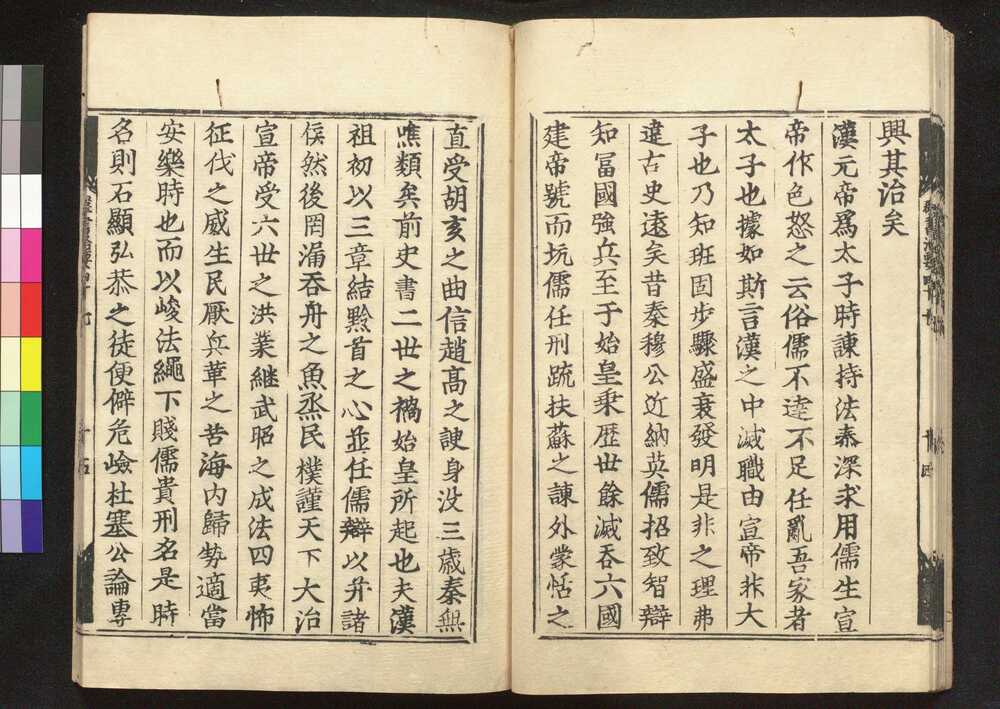 興其治矣
漢元帝爲太子時諫持法泰深求用儒生宣
帝作色怒之云俗儒不達不足任亂吾家者
太子也據如斯言漢之中滅職由宣帝非太
子也乃知班固步驟盛衰發明是非之理弗
違古史遠矣昔秦穆公近納英儒招致智辯
知冨國強兵至于始皇乗歴世餘滅吞六國
建帝號而坑儒任刑疏扶蘇之諫外蒙恬之
直受胡亥之曲信趙高之諛身没三歳秦無
噍類矣前史書二世之禍始皇所起也夫漢
祖初以三章結黔首之心並任儒辯以并諸
侯然後罔漏吞舟之魚烝民樸謹天下大治
宣帝受六世之洪業継武昭之成法四夷怖
征伐之威生民厭兵革之苦海内歸勢適當
安樂時也而以峻法繩下賤儒貴刑名是時
名則石顯弘恭之徒便僻危嶮杜塞公論專